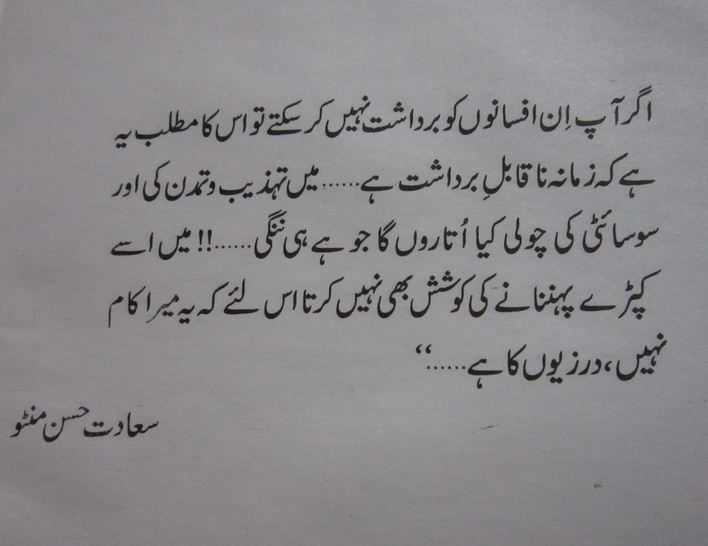 اگر آپ اِن افسانوں کو برداشت نہیں کر سکتے تو اس کا مطلب یہ
ہے کہ زمانہ نا قابلِ برداشت ہے......میں تہذیب و تمدن کی اور
سوسائٹی کی چولی کیا اُتاروں گا جو ہے ہی ننگی......!! میں اسے
کپڑے پہننانے کی کوشش بھی نہیں کرتا اس لئے کہ یہ میرا کام
نہیں، درزیوں کا ہے......“
سعادت حسن منٹو